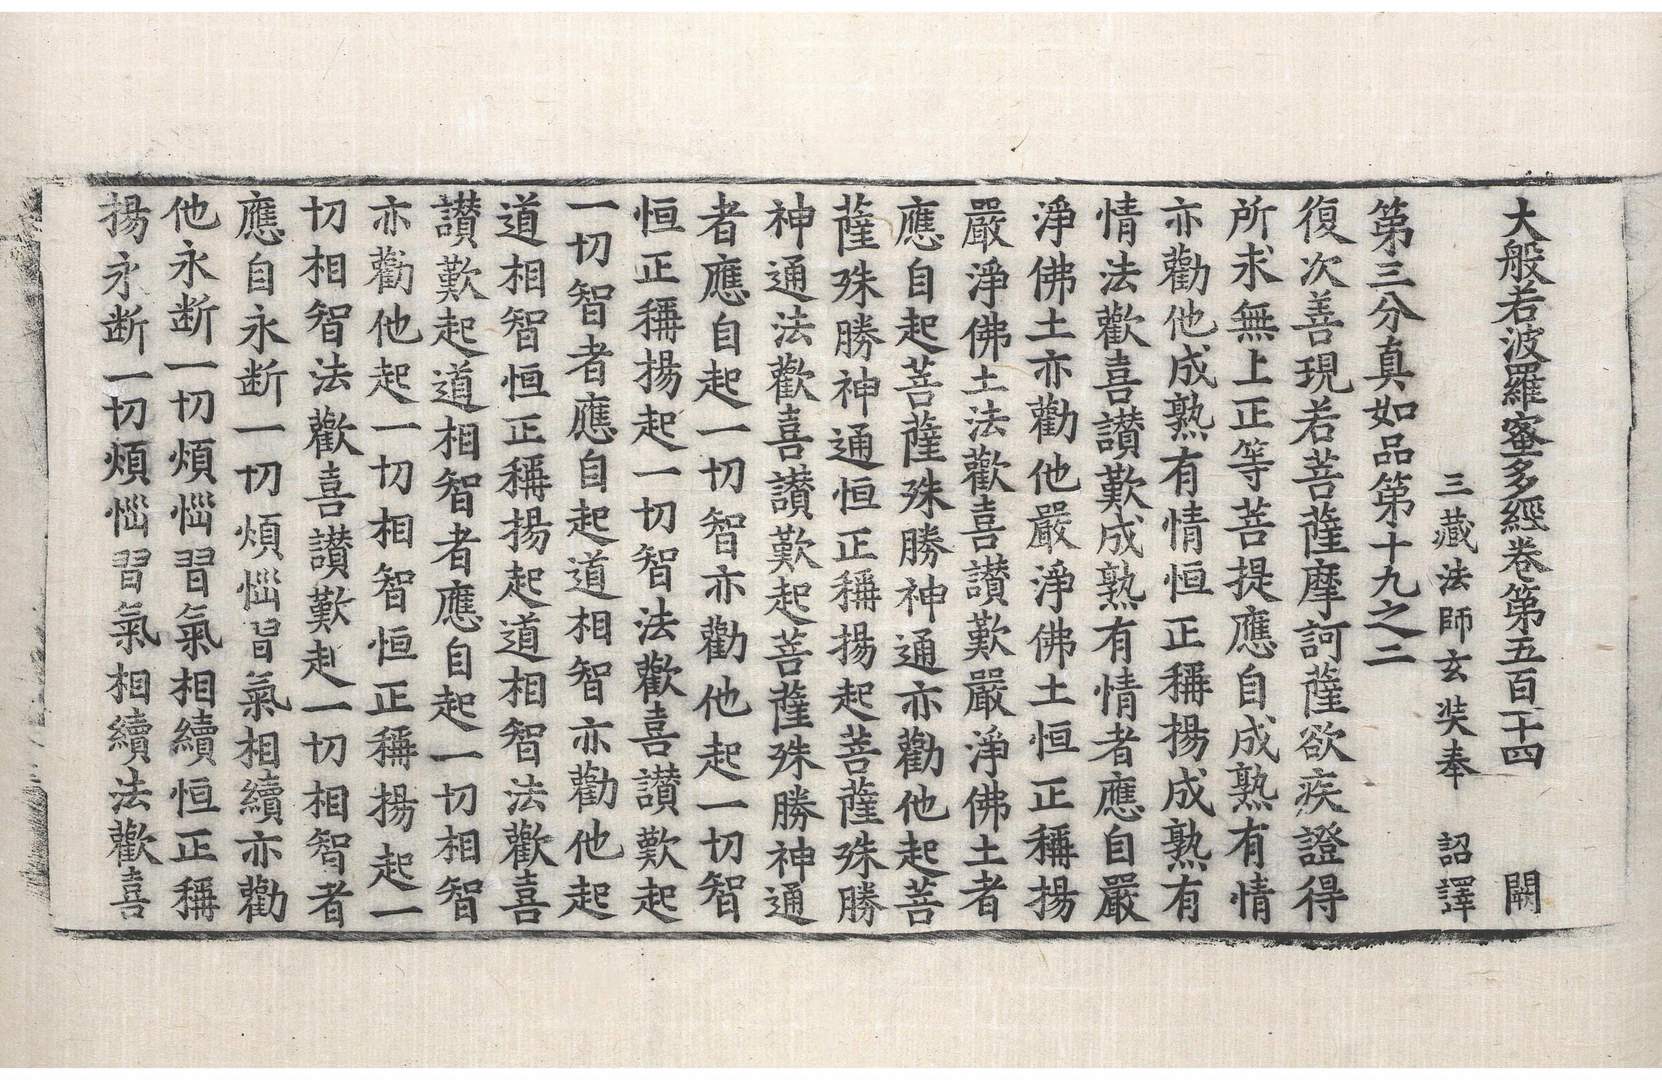 大般若波羅蜜多經卷第五百十四 闕
三藏法師玄奘奉 詔譯
第三分真如品第十九之二
復次善現若菩薩摩訶薩欲疾證得
所求無上正等菩提應自成熟有情
亦勸他成熟有情恒正稱揚成熟有
情法歡喜讃歎成熟有情者應自嚴
淨佛土亦勸他嚴淨佛土恒正稱揚
嚴淨佛土法歡喜讃歎嚴淨佛土者
應自起菩薩殊勝神通亦勸他起菩
薩殊勝神通恒正稱揚起菩薩殊勝
神通法歡喜讃歎起菩薩殊勝神通
者應自起一切智亦勸他起一切智
恒正稱揚起一切智法歡喜讃歎起
一切智者應自起道相智亦勸他起
道相智恒正稱揚起道相智法歡喜
讃歎起道相智者應自起一切相智
亦勸他起一切相智恒正稱揚起一
切相智法歡喜讃歎起一切相智者
應自永断一切煩惱習氣相續亦勸
他永断一切煩惱習氣相續恒正稱
揚永断一切煩惱習氣相續法歡喜